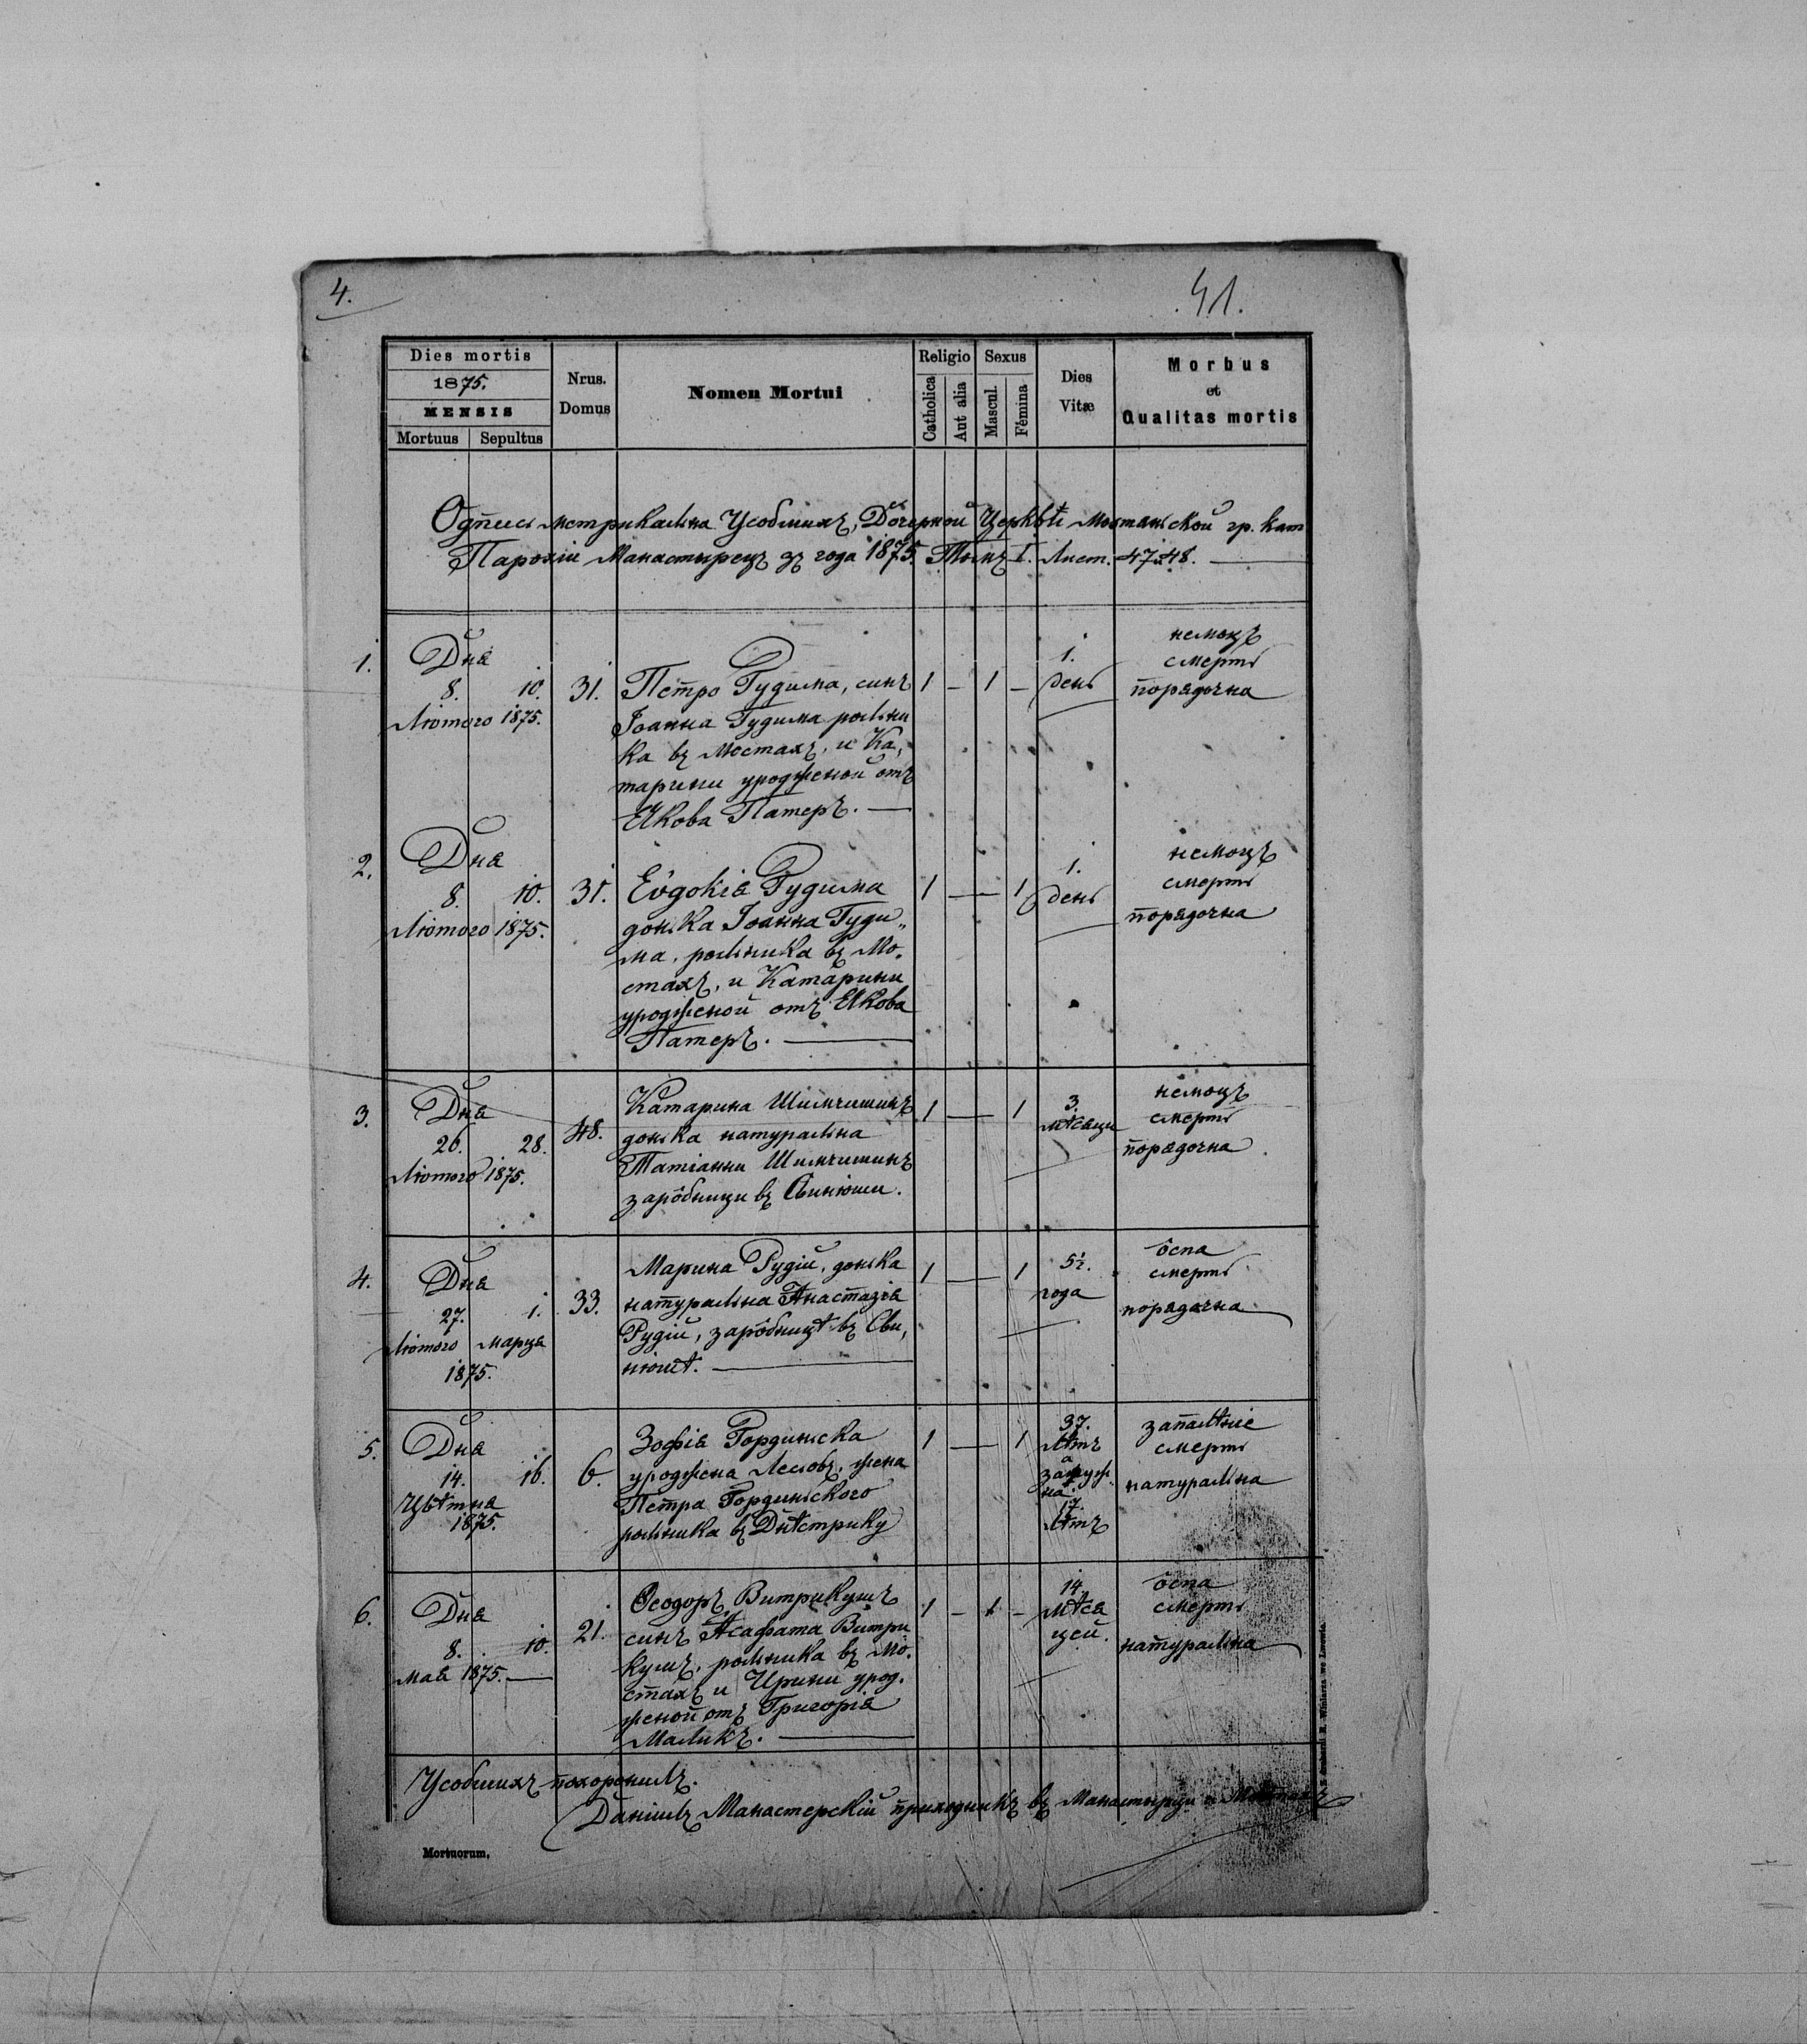 4.
41.
Dies mortis
1875.
MENSIS
Mortuus Sepultus
Nrus. Domus
Nomen Mortui
Religio
Catholica
Aut alia
Sexus
Mascul.
Fémina
Dies Vitæ
Morbus
et
Qualitas mortis
Одпись метрикальна Усобшихъ, Дочерной Церквѣ Мостаньской гр. кат
Парохіи Манастырецъ зъ года 1875. Томъ I. Лист. 47 и 48.
1.
Дня
8. 10.
Лютого 1875.
31.
Петро Гудима, синъ
Іоанна Гудима рольни
ка въ Мостахъ, и Ка,
тарини уродженой отъ
Якова Патеръ. —
1 — 1 —
1.
день
немоцъ
смерть
порядочна
2.
Дня
8. 10.
Лютого 1875.
31.
Евдокія Гудима
донька Іоанна Гуди„
ма, рольника въ Мо.
стахъ, и Катарини
уродженой отъ Якова
Патеръ. —
1 — 1
1.
день
немоцъ
смерть
порядочна
3.
Дня
26. 28.
Лютого 1875.
48.
Катарина Шимчишинъ
донька натуральна
Татіанни Шимчишинъ
зарôбници въ Свинюши.
1 — 1
3.
мѣсяци
немоцъ
смерть
порядочна
4.
Дня
27. 1.
Лютого Марця
1875.
33.
Марина Рудій, донька
натуральна Анастазія
Рудій, зарôбницѣ въ Сви,
нюшѣ. —
1 — 1
5½.
года
ôспа
смерть
порядочна
5.
Дня
14. 16.
Цвѣтня
1875.
6.
Зофія Гординьска
уроджена Лесювъ, жена
Петра Гординьского
рольника въ Днѣстрику
1 — 1
37.
лѣтъ
а
замуж.
на
17.
лѣтъ
запалѣніе
смерть
натуральна
6.
Дня
8. 10.
Мая 1875. —
21.
Ѳеодоръ Витрикушъ
синъ Асафата Витри
кушъ, рольника въ Мо.
стахъ и Ирини урод.
женой отъ Григорія
Маликъ. —
1 — 1 —
14.
мѣся
цей.
ôспа
смерть
натуральна
Усобшихъ похоронилъ.
Даніилъ Манастерскій приходникъ въ Манастырци и Мостахъ
Mortuorum.